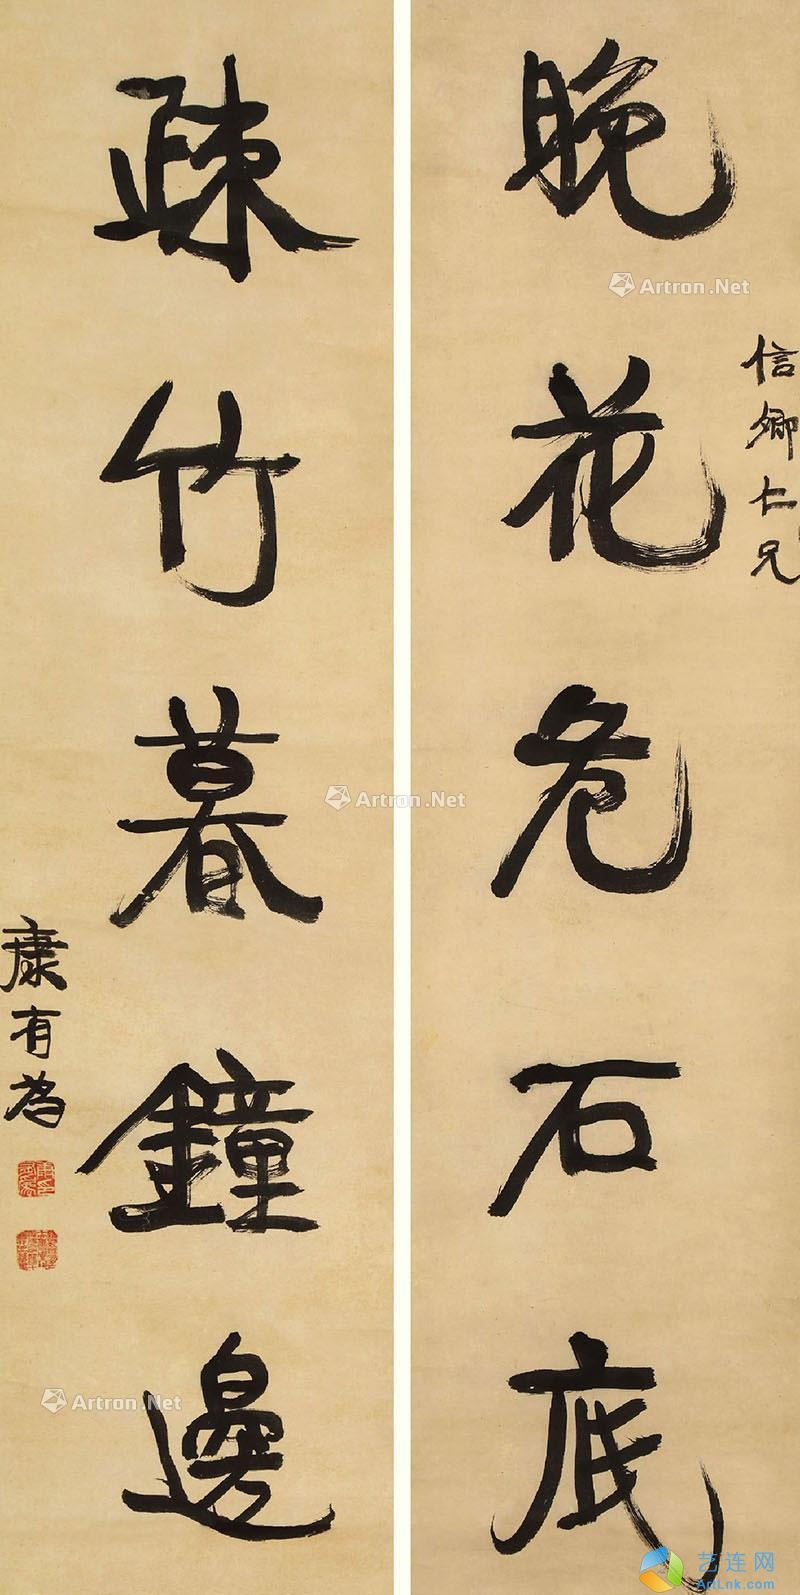 信卿仁兄
晚花危石底
疎竹暮鐘邊
康有為
Artron.Net
Artron.Net
Artron.Net
艺连网
ArtLnk.com